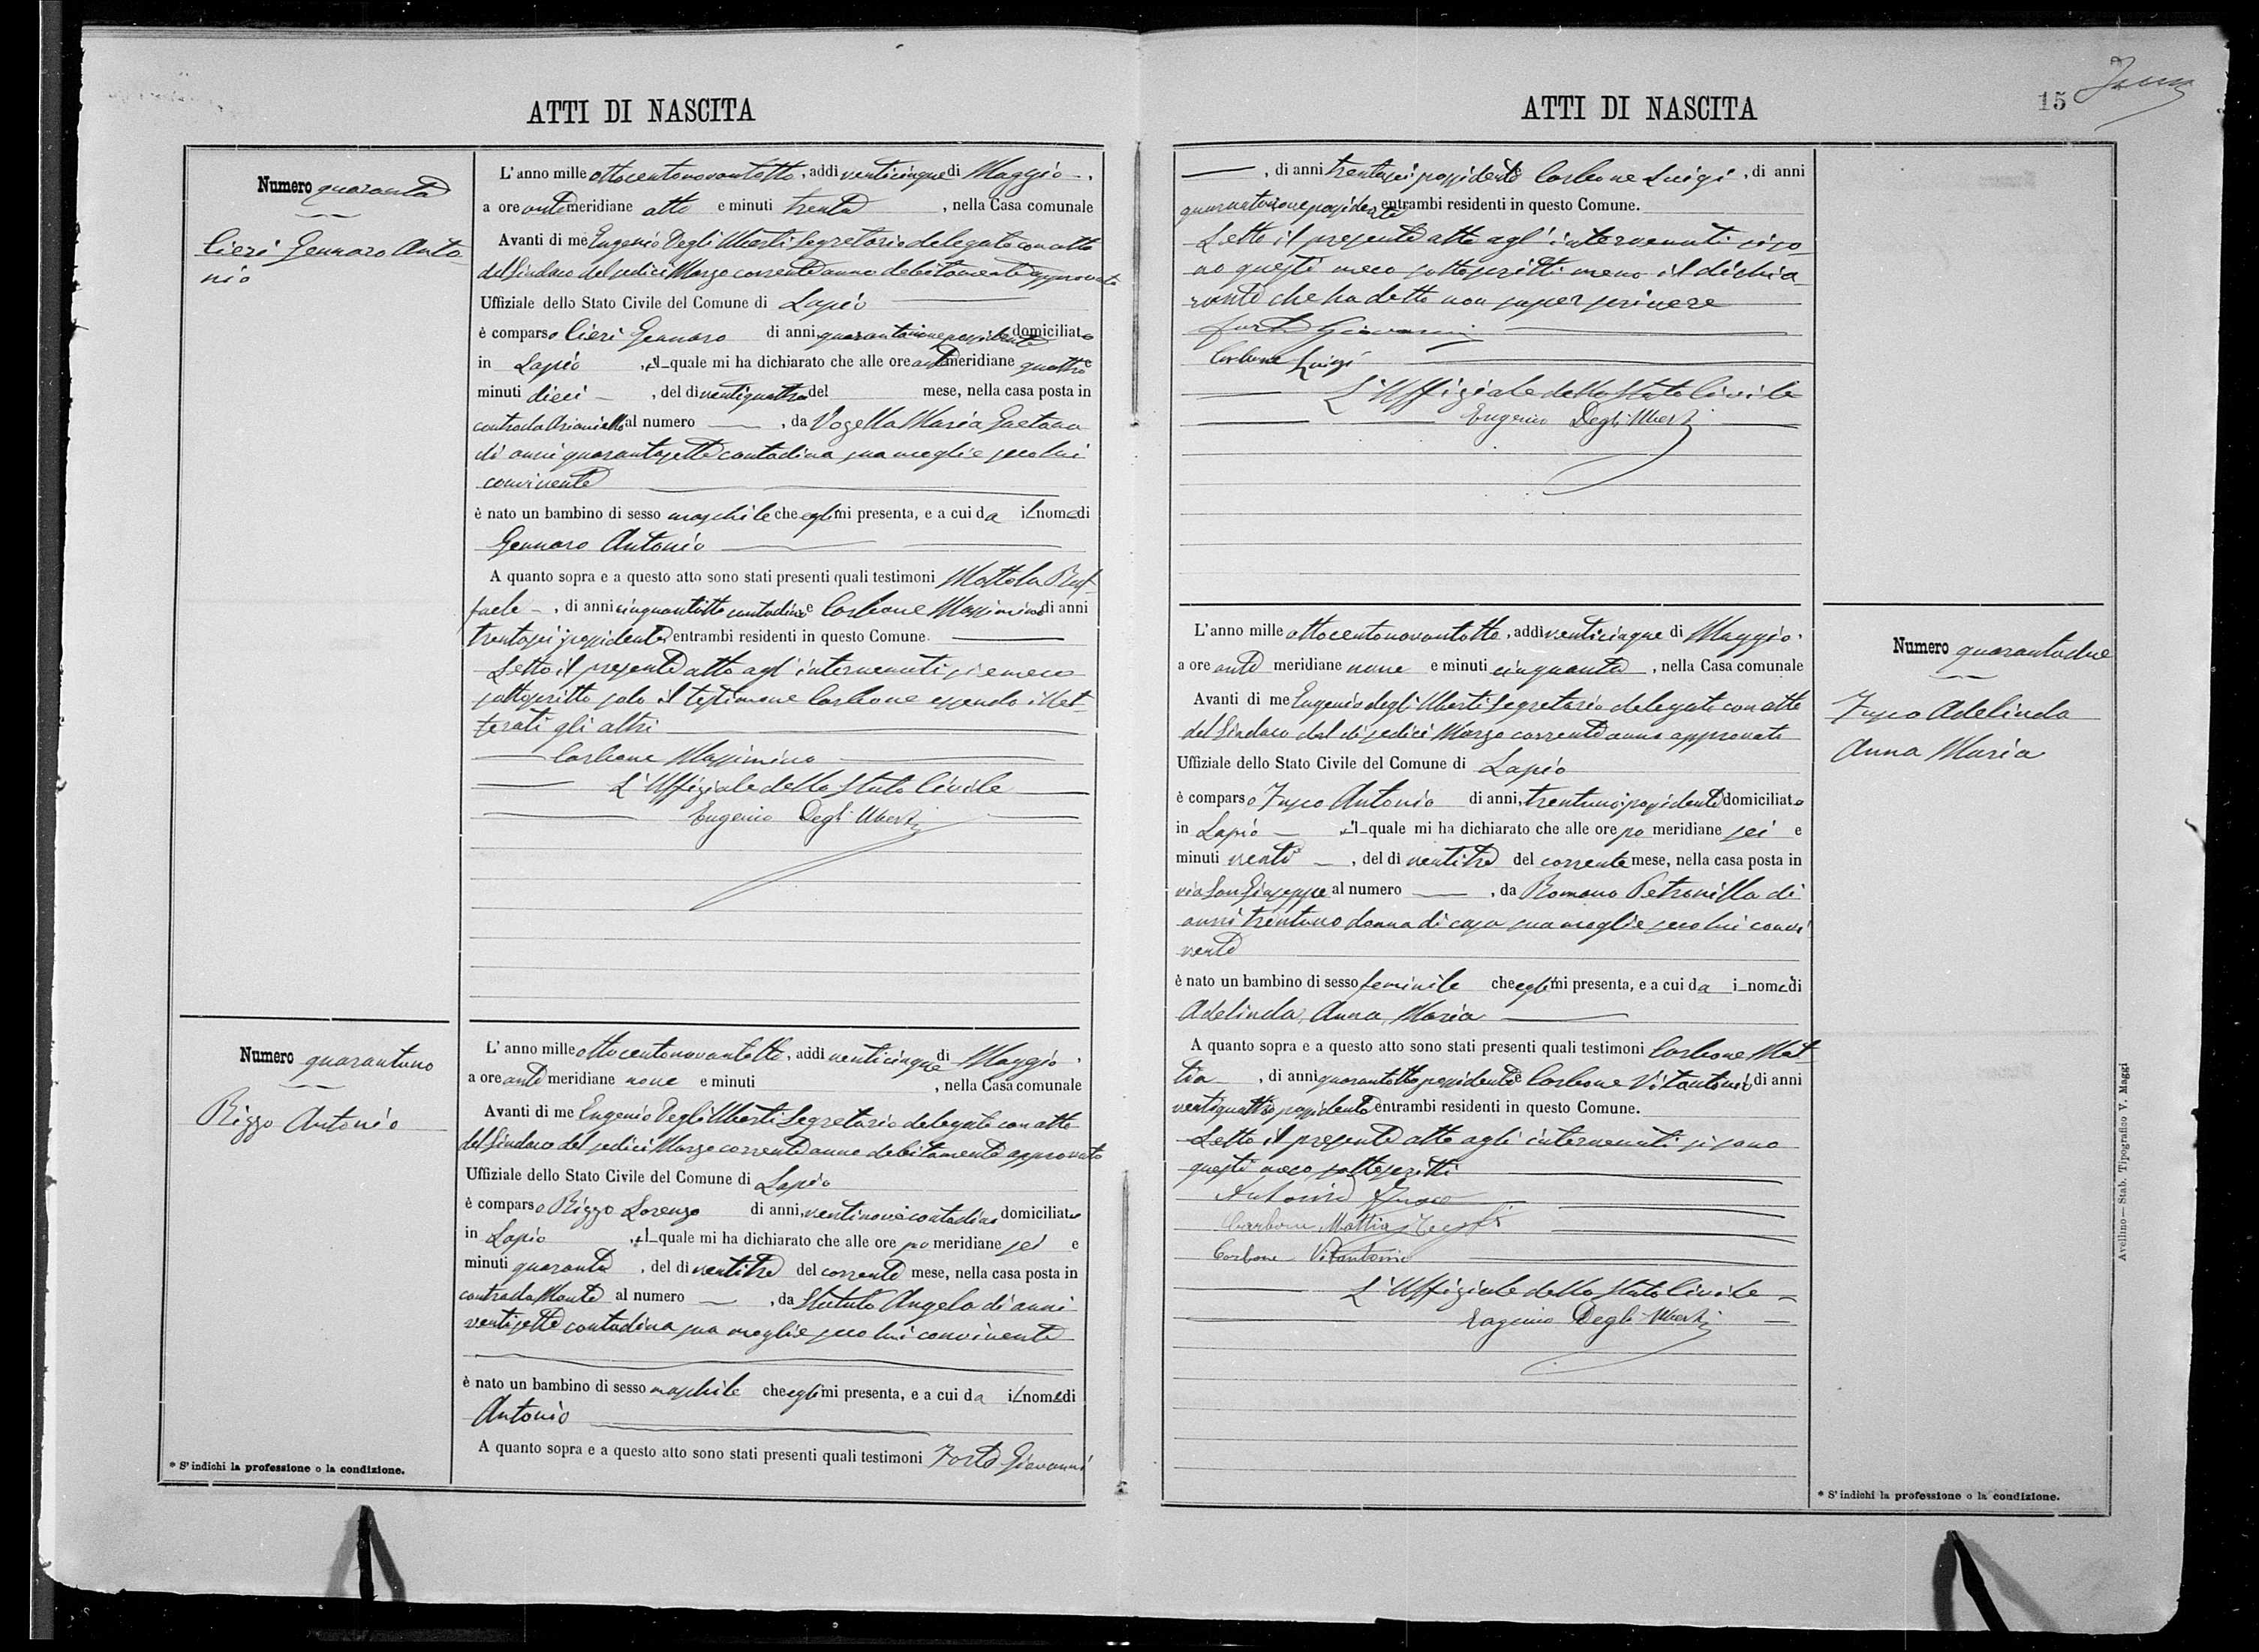 ATTI DI NASCITA
Numero quaranta
Cieri Gennaro Anto-
nio
L'anno mille ottocentonovantotto, addì venticinque di Maggio,
a ore antimeridiane otto e minuti trenta, nella Casa comunale
Avanti di me Eugenio Degli Uberti Segretario delegato con atto
del Sindaco del sedici Marzo corrente anno debitamente approvato
Uffiziale dello Stato Civile del Comune di Lapio
è comparso Cieri Gennaro di anni quarantanove possidente domiciliato
in Lapio, il quale mi ha dichiarato che alle ore antimeridiane quattro e
minuti dieci, del dì ventiquattro del mese, nella casa posta in
contrada Arianiello al numero, da Vozella Maria Gaetana
di anni quarantasette contadina sua moglie seco lui
convivente
è nato un bambino di sesso maschile che egli mi presenta, e a cui da il nome di
Gennaro Antonio
A quanto sopra e a questo atto sono stati presenti quali testimoni Mottola Raf-
faele, di anni cinquantotto contadino e Carbone Massimino di anni
trentasei possidente, entrambi residenti in questo Comune.
Letto il presente atto agl'intervenuti si è meco
sottoscritto solo il testimone Carbone essendo illet-
terati gli altri
Carbone Massimino
L'Uffiziale dello Stato Civile
Eugenio Degli Uberti
Numero quarantuno
Rizzo Antonio
L'anno mille ottocentonovantotto, addì venticinque di Maggio,
a ore antimeridiane nove e minuti, nella Casa comunale
Avanti di me Eugenio Degli Uberti Segretario delegato con atto
del Sindaco del sedici Marzo corrente anno debitamente approvato
Uffiziale dello Stato Civile del Comune di Lapio
è comparso Rizzo Lorenzo di anni, ventinove contadino domiciliato
in Lapio, il quale mi ha dichiarato che alle ore pomeridiane sei e
minuti quaranta, del dì ventitre del corrente mese, nella casa posta in
contrada Monte al numero, da Statuto Angela di anni
ventisette contadina sua moglie seco lui convivente
è nato un bambino di sesso maschile che egli mi presenta, e a cui da il nome di
Antonio
A quanto sopra e a questo atto sono stati presenti quali testimoni Forte Giovanni
* S'indichi la professione o la condizione.
ATTI DI NASCITA
15
, di anni trentasei possidente Carbone Luigi, di anni
quarantanove possidente entrambi residenti in questo Comune.
Letto il presente atto agl'intervenuti si so-
no questi meco sottoscritti meno il dichia-
rante che ha detto non saper scrivere
Forte Giovanni
Carbone Luigi
L'Uffiziale dello Stato Civile
Eugenio Degli Uberti
Numero quarantadue
Fusco Adelinda
Anna Maria
L'anno mille ottocentonovantotto, addì venticinque di Maggio,
a ore ante meridiane nove e minuti cinquanta, nella Casa comunale
Avanti di me Eugenio degli Uberti Segretario delegato con atto
del Sindaco del dì sedici Marzo corrente anno approvato
Uffiziale dello Stato Civile del Comune di Lapio
è comparso Fusco Antonio di anni, trentuno possidente domiciliato
in Lapio, il quale mi ha dichiarato che alle ore po meridiane sei e
minuti venti, del dì ventitre del corrente mese, nella casa posta in
via San Giuseppe al numero, da Romano Petronilla di
anni trentuno donna di casa sua moglie seco lui convi
vente
è nato un bambino di sesso feminile che egli mi presenta, e a cui da i nome di
Adelinda, Anna, Maria
A quanto sopra e a questo atto sono stati presenti quali testimoni Carbone Mat-
tia, di anni quarantotto possidente e Carbone Vitantonio di anni
ventiquattro possidente entrambi residenti in questo Comune.
Letto il presente atto agli intervenuti si sono
questi meco sottoscritti
Antonio Fusco
Carbone Mattia
Carbone Vitantonio
L'Uffiziale dello Stato Civile
Eugenio Degli Uberti
* S'indichi la professione o la condizione.
Avellino—Stab. Tipografico V. Maggi